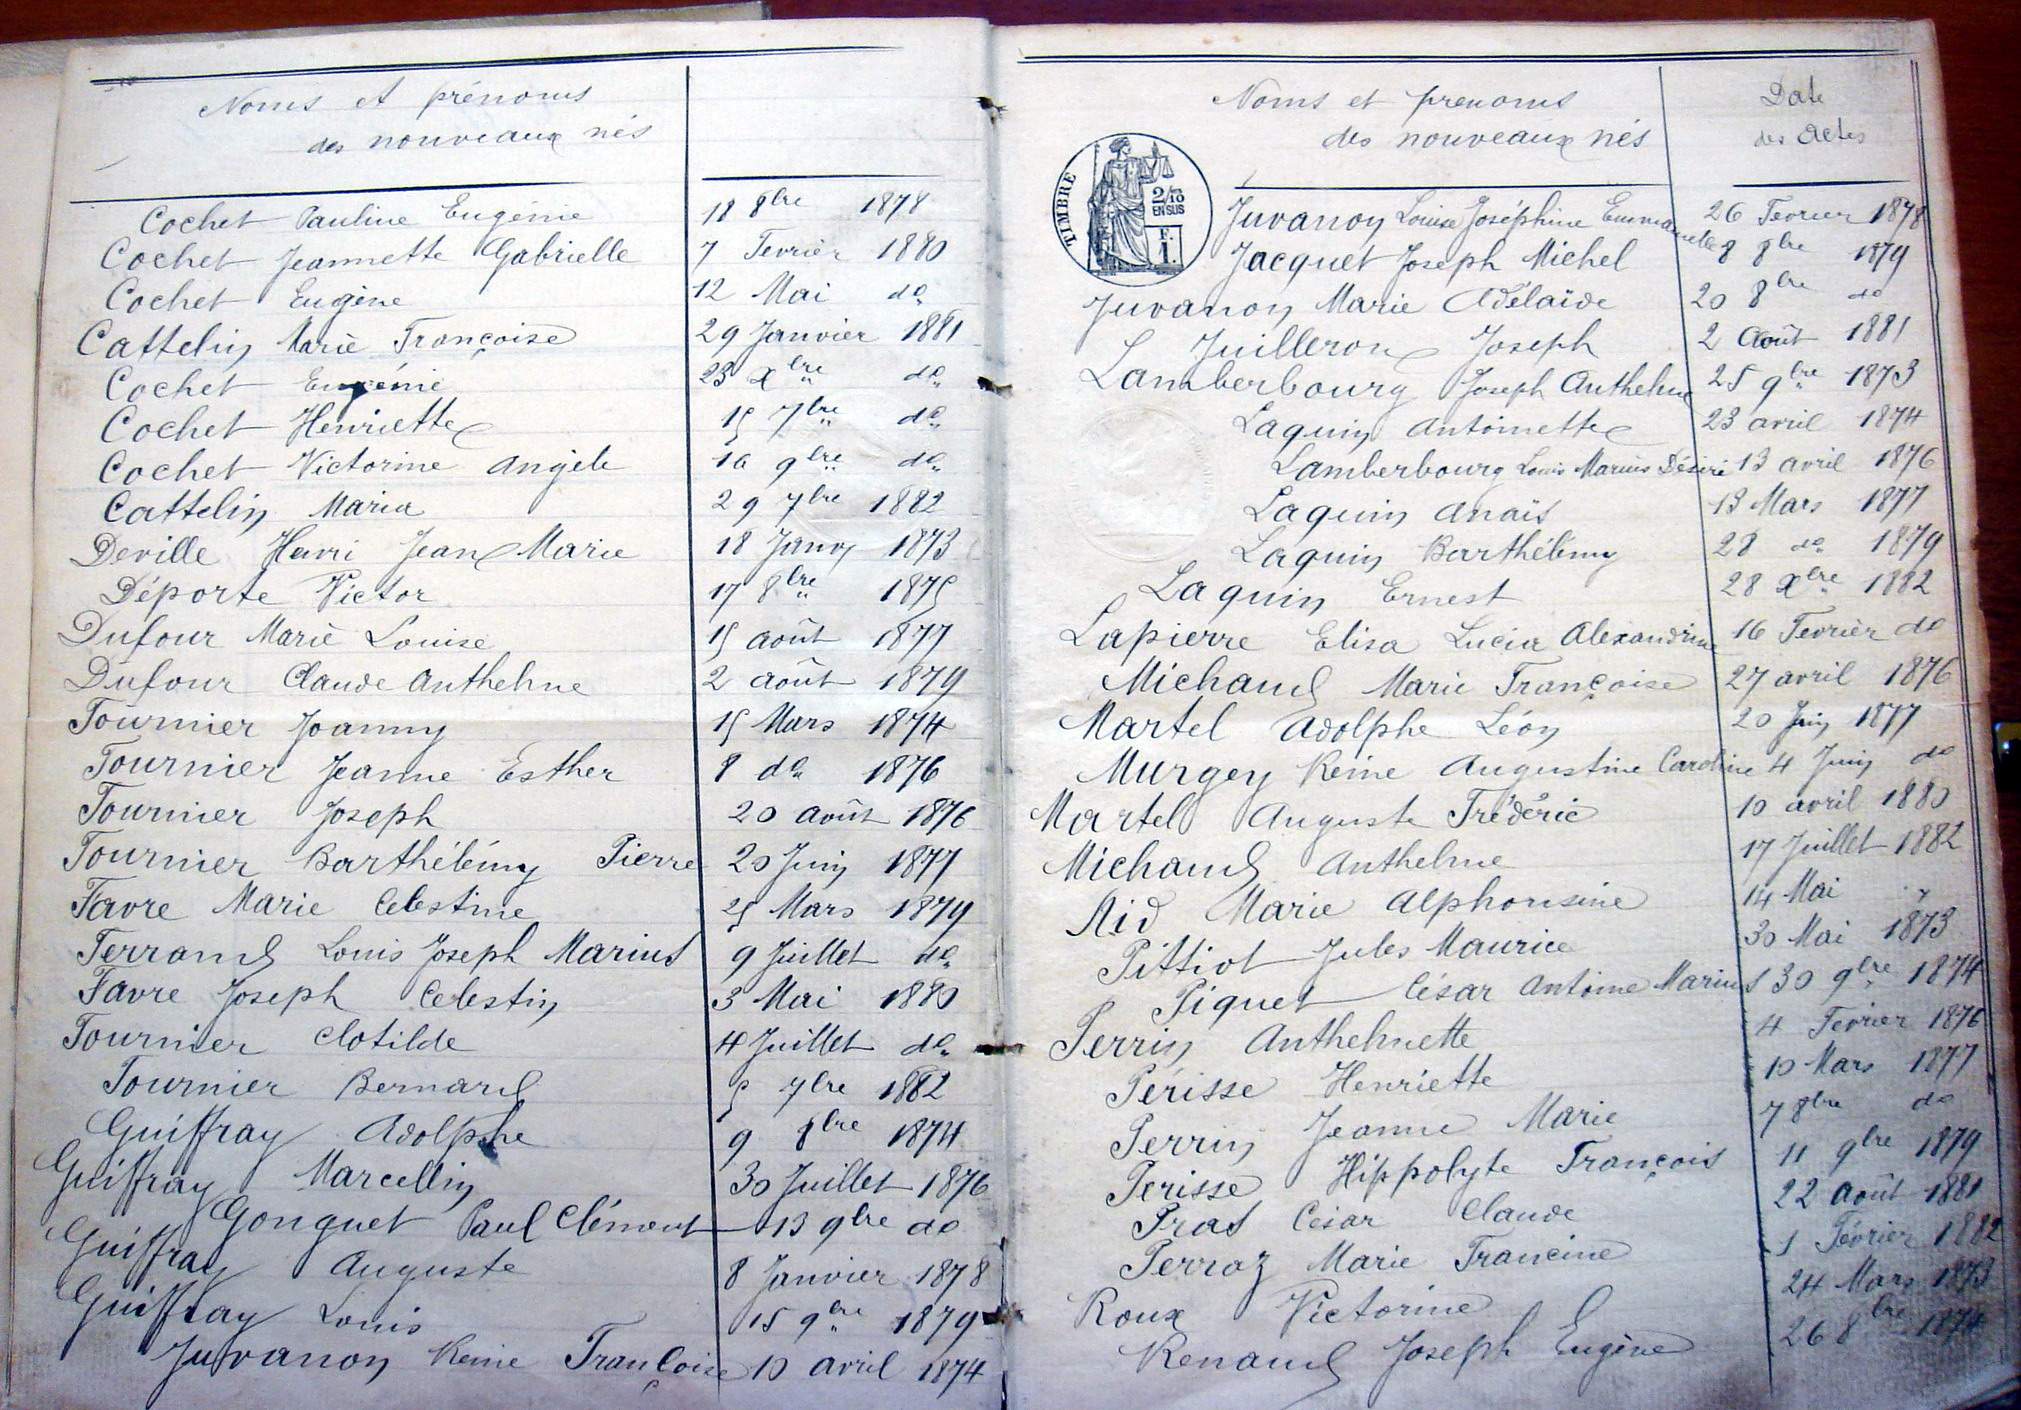 Noms et prénoms
des nouveaux nés
Cochet Pauline Eugénie 18 8bre 1878
Cochet Jeannette Gabrielle 7 Fevrier 1880
Cochet Eugène 12 Mai do
Cattelin Marie Françoise 29 Janvier 1881
Cochet Eugénie 23 Xbre do
Cochet Henriette 15 7bre do
Cochet Victorine Angèle 16 9bre do
Cattelin Maria 29 7bre 1882
Deville Henri Jean Marie 18 Janv 1873
Déporte Victor 17 8bre 1875
Dufour Marie Louise 15 août 1877
Dufour Claude Anthelme 2 août 1879
Fournier Joanny 15 Mars 1874
Fournier Jeanne Esther 8 do 1876
Fournier Joseph 20 août 1876
Fournier Barthélémy Pierre 20 Juin 1877
Favre Marie Celestine 25 Mars 1879
Ferrand Louis Joseph Marius 9 Juillet do
Favre Joseph Celestin 3 Mai 1880
Fournier Clotilde 4 Juillet do
Fournier Bernard 5 7bre 1882
Guiffray Adolphe 9 8bre 1874
Guiffray Marcellin 30 Juillet 1876
Gonguet Paul Clément 13 9bre do
Guiffray Auguste 8 Janvier 1878
Guiffray Louis 15 9bre 1879
Juvanon Reine Françoise 10 avril 1874
Noms et prenoms
des nouveaux nés
Date
des Actes
TIMBRE
2/10
EN SUS
F.
1.
Juvanon Louise Joséphine Emmanuelle 26 Fevrier 1878
Jacquet Joseph Michel 8 8bre 1879
Juvanon Marie Adélaïde 20 8bre do
Juilleron Joseph 2 Août 1881
Lamberbourg Joseph Anthelme 25 9bre 1873
Laquin Antoinette 23 avril 1874
Lamberbourg Louis Marius Désiré 13 avril 1876
Laquin Anaïs 13 Mars 1877
Laquin Barthélémy 28 do 1879
Laquin Ernest 28 Xbre 1882
Lapierre Elisa Lucia Alexandrine 16 Fevrier do
Michaud Marie Françoise 27 avril 1876
Martel Adolphe Léon 20 Juin 1877
Murgey Reine Augustine Caroline 4 Juin do
Martel Auguste Frédéric 10 avril 1880
Michaud Anthelme 17 Juillet 1882
Nid Marie Alphonsine 14 Mai
Pittiot Jules Maurice 30 Mai 1873
Piquet César Antoine Marius 30 9bre 1874
Perrin Anthelmette 4 Fevrier 1876
Périsse Henriette 10 Mars 1877
Perrin Jeanne Marie 7 8bre do
Perisse Hippolyte François 11 9bre 1879
Prat César Claude 22 août 1881
Perraz Marie Francine 1 Février 1882
Roux Victorine 24 Mars 1873
Renaud Joseph Eugène 26 8bre 1874